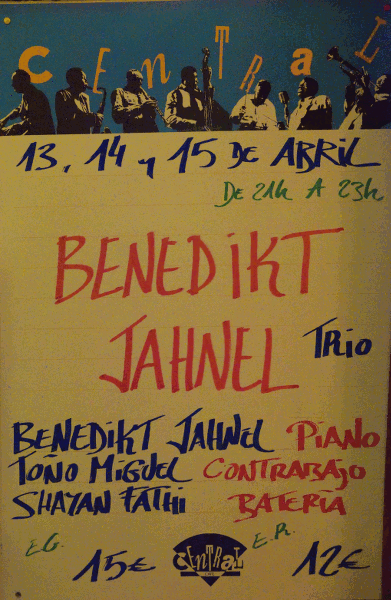 CENTRAL
13, 14 y 15 DE ABRIL
DE 21h A 23h
BENEDIKT
JAHNEL TRIO
BENEDIKT JAHNEL PIANO
TOÑO MIGUEL CONTRABAJO
SHAYAN FATHI BATERÍA
E.G. E.R.
15€ CENTRAL 12€